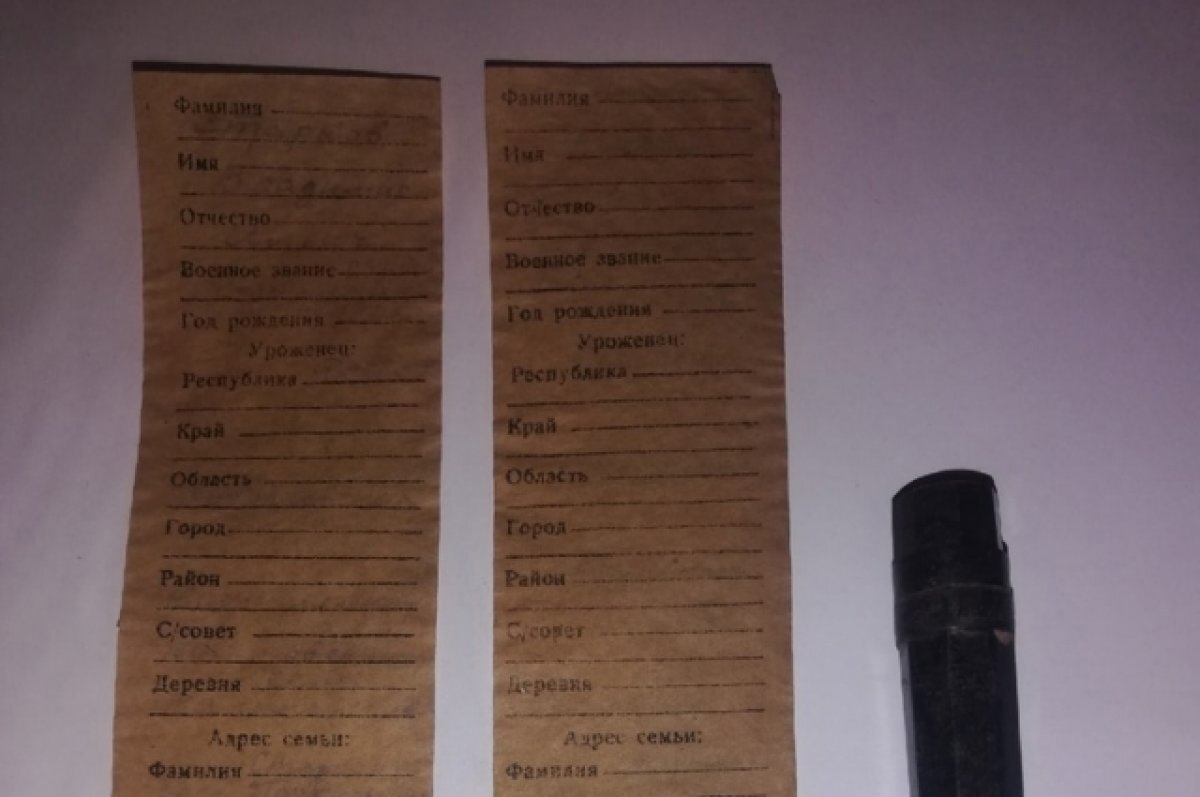 Фамилия
Имя
Отчество
Военное звание
Год рождения
Уроженец:
Республика
Край
Область
Город
Район
С/совет
Деревня
Адрес семьи:
Фамилия
Фамилия
Имя
Отчество
Военное звание
Год рождения
Уроженец:
Республика
Край
Область
Город
Район
С/совет
Деревня
Адрес семьи:
Фамилия